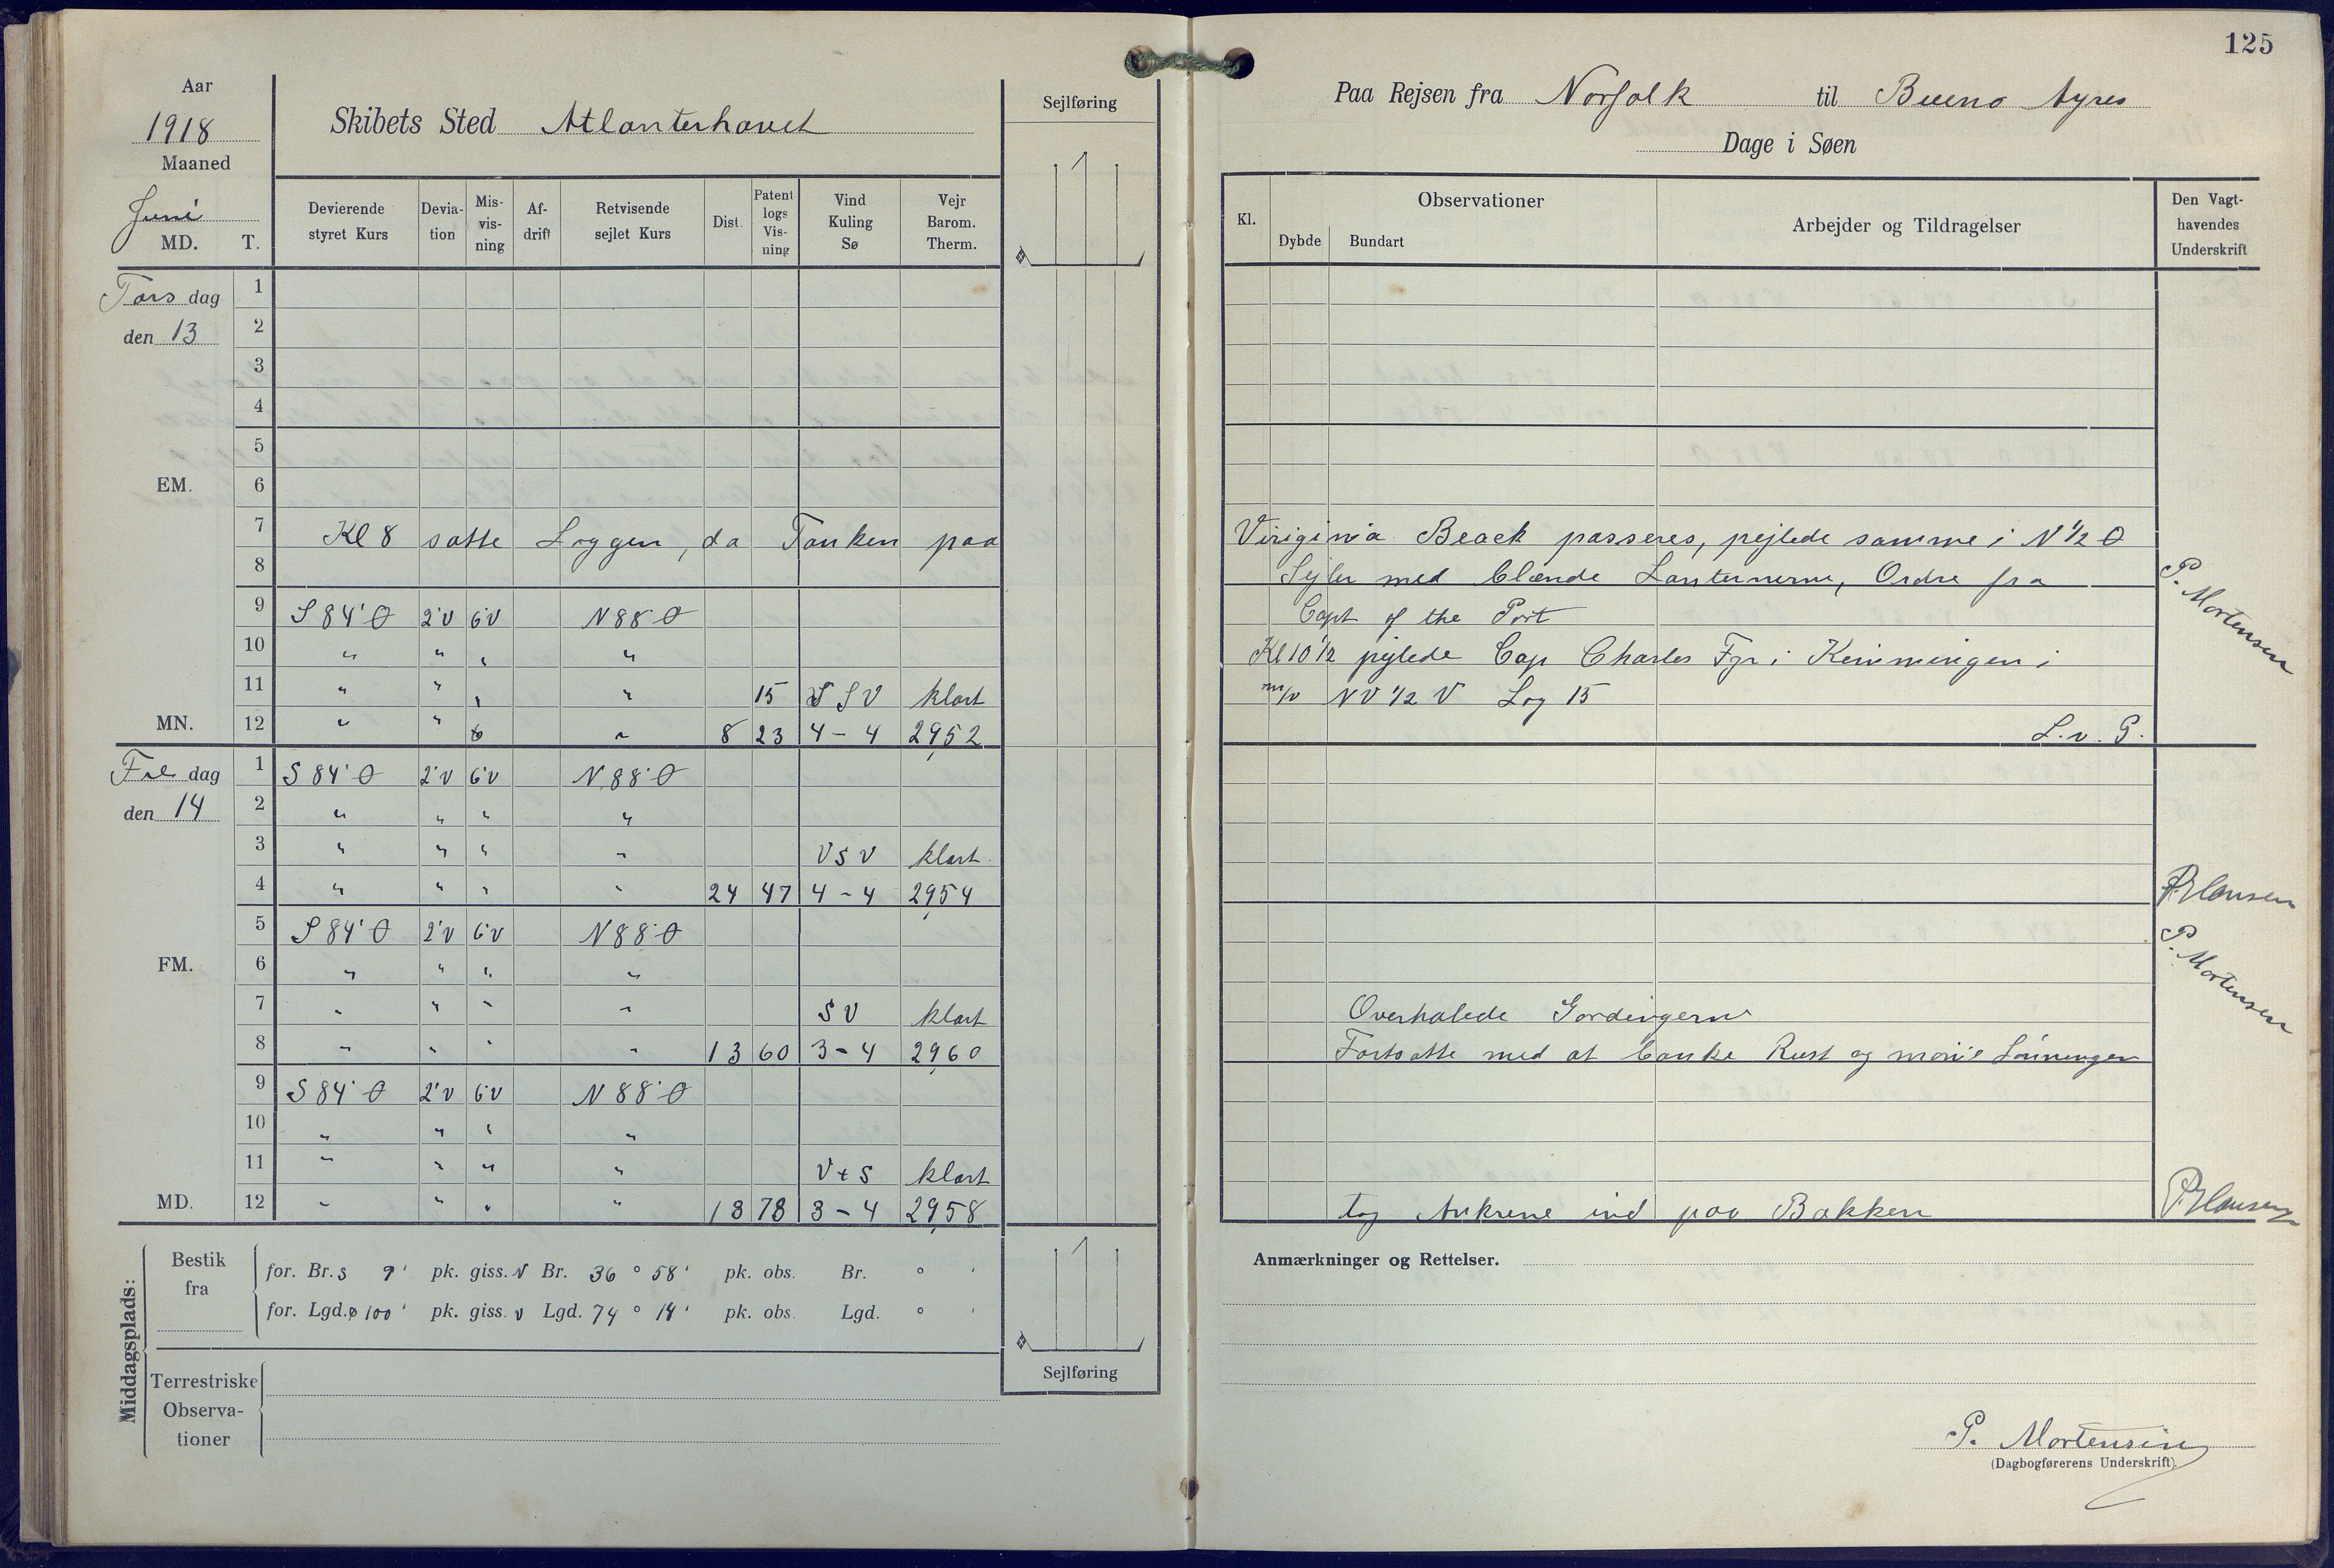 125
Aar
1918
Maaned
Juni
MD. T.
Skibets Sted Atlanterhavet
Sejlføring
Paa Rejsen fra Norfolk til Bueno Ayres
Dage i Søen
Devierende styret Kurs
Devia-tion
Mis-vis-ning
Af-drift
Retvisende sejlet Kurs
Dist.
Patent logs Vis-ning
Vind Kuling Sø
Vejr Barom. Therm.
Kl.
Observationer
Dybde Bundart
Arbejder og Tildragelser
Den Vagt-havendes Underskrift
Tors dag 1
den 13 2
3
4
5
EM. 6
7 Kl 8 satte Loggen, da Tanken paa Viriginia Beack passeres, pejlede samme i N 1/2 Ø
8 Sejler med blænde Lanternerne, Ordre fra
9 S 84° Ø 2°V 6°V N 88° Ø Capt of the Port
10 " " " " Kl 10 1/2 pejlede Cap Charles Fyr i Kimmingen i
11 " " " " 15 S S V klart m/v NV 1/2 V Log 15
MN. 12 " " 6 " 8 23 4 - 4 29,52 L. v. P.
P. Mortensen
Fre dag 1 S 84° Ø 2°V 6°V N 88° Ø
den 14 2 " " " "
3 " " " " V S V klart
4 " " " " 24 47 4 - 4 29,54 P Hansen
5 S 84° Ø 2°V 6°V N 88° Ø
FM. 6 " " " "
7 " " " " S V klart Overhalede Gordingerne
8 " " " " 13 60 3 - 4 29,60 Fortsatte med at banke Rust og mønie Lønningen
P. Mortensen
9 S 84° Ø 2°V 6°V N 88° Ø
10 " " " "
11 " " " " V t S klart
MD. 12 " " " " 18 78 3 - 4 29,58 tog Ankrene ind paa Bakken P Hansen
Middagsplads:
Bestik fra
for. Br. S 9' pk. giss. N Br. 36 ° 58' pk. obs. Br. ° '
for. Lgd. Ø 100' pk. giss. V Lgd. 74 ° 14' pk. obs. Lgd. ° '
Terrestriske
Observa-
tioner
Sejlføring
Anmærkninger og Rettelser.
P. Mortensen
(Dagbogførerens Underskrift).